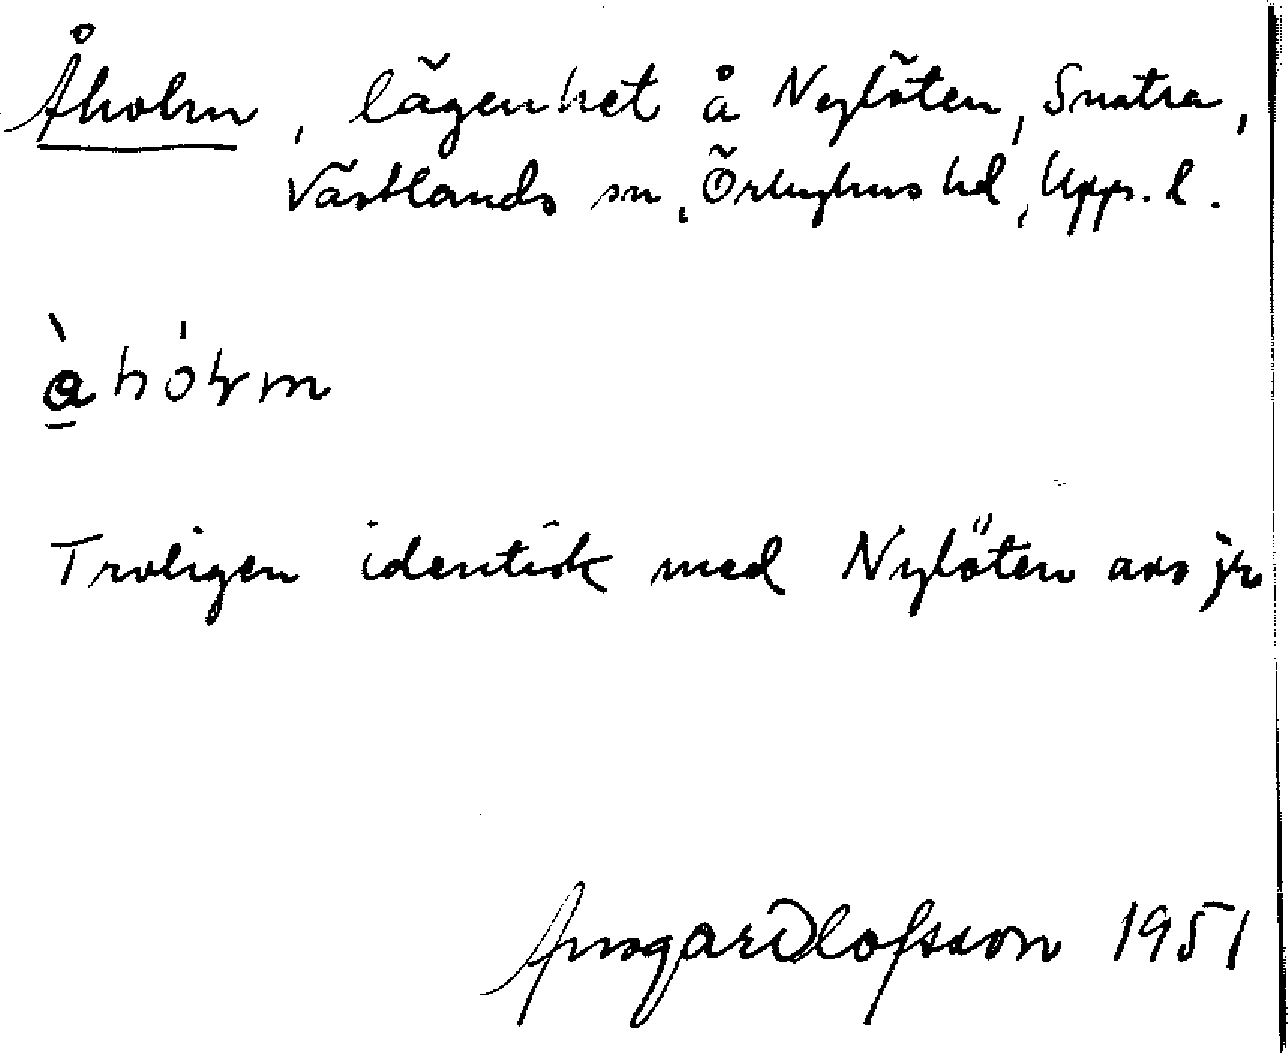 Åholm, lägenhet å Nylöten, Snatra,
Västlands sn, Örbyhus hd, Upps. l.
Troligen identisk med Nylöten avs jr
Ansgar Olofsson 1951